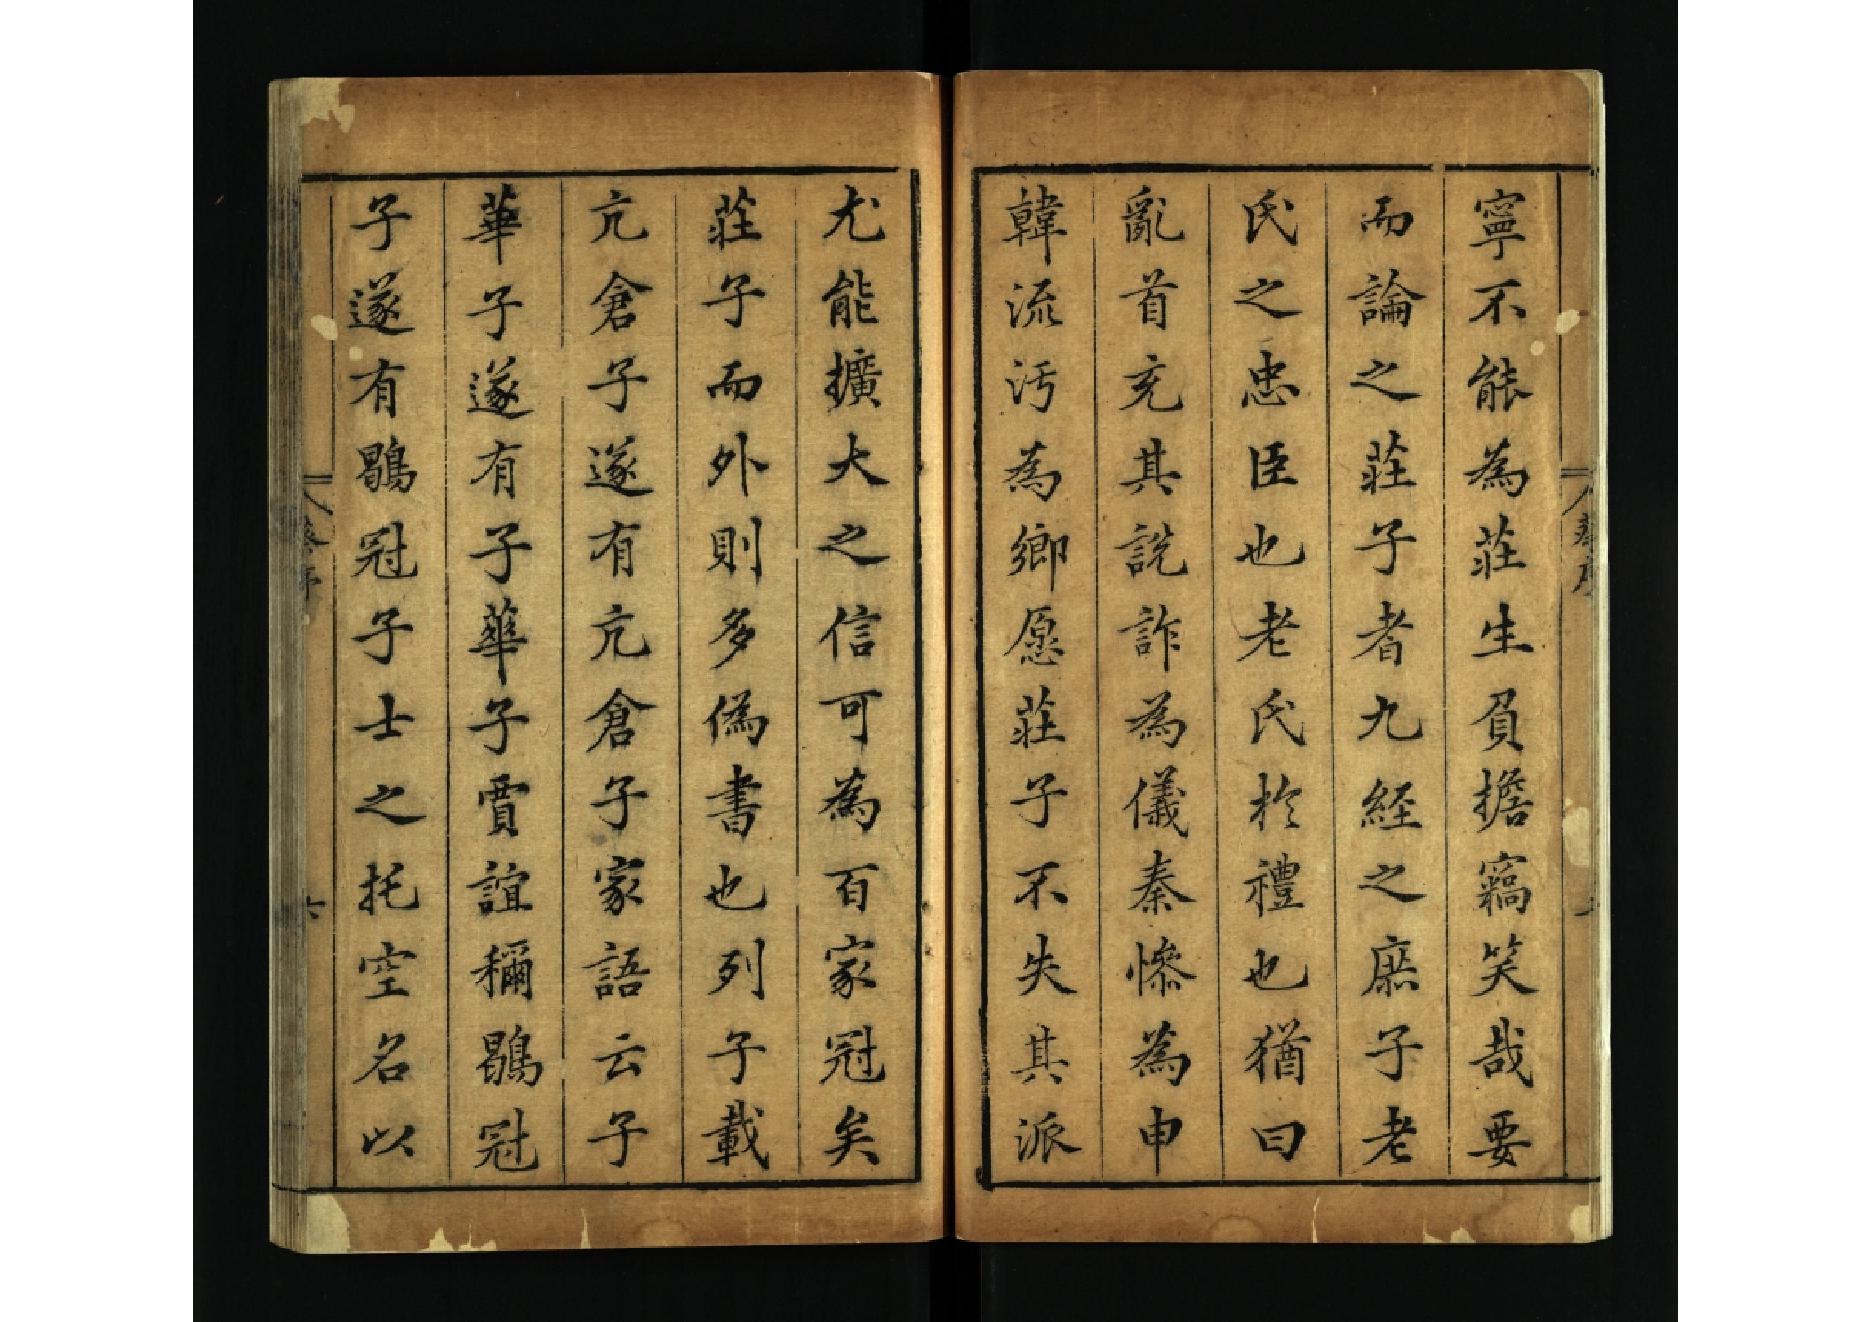 寧不能為莊生負擔竊笑哉要
而論之莊子者九經之庶子老
氏之忠臣也老氏於禮也猶曰
亂首充其說詐為儀秦慘為申
韓流汚為鄉愿莊子不失其派
尤能擴大之信可為百家冠矣
莊子而外則多偽書也列子載
亢倉子遂有亢倉子家語云子
華子遂有子華子賈誼稱鶡冠
子遂有鶡冠子士之托空名以